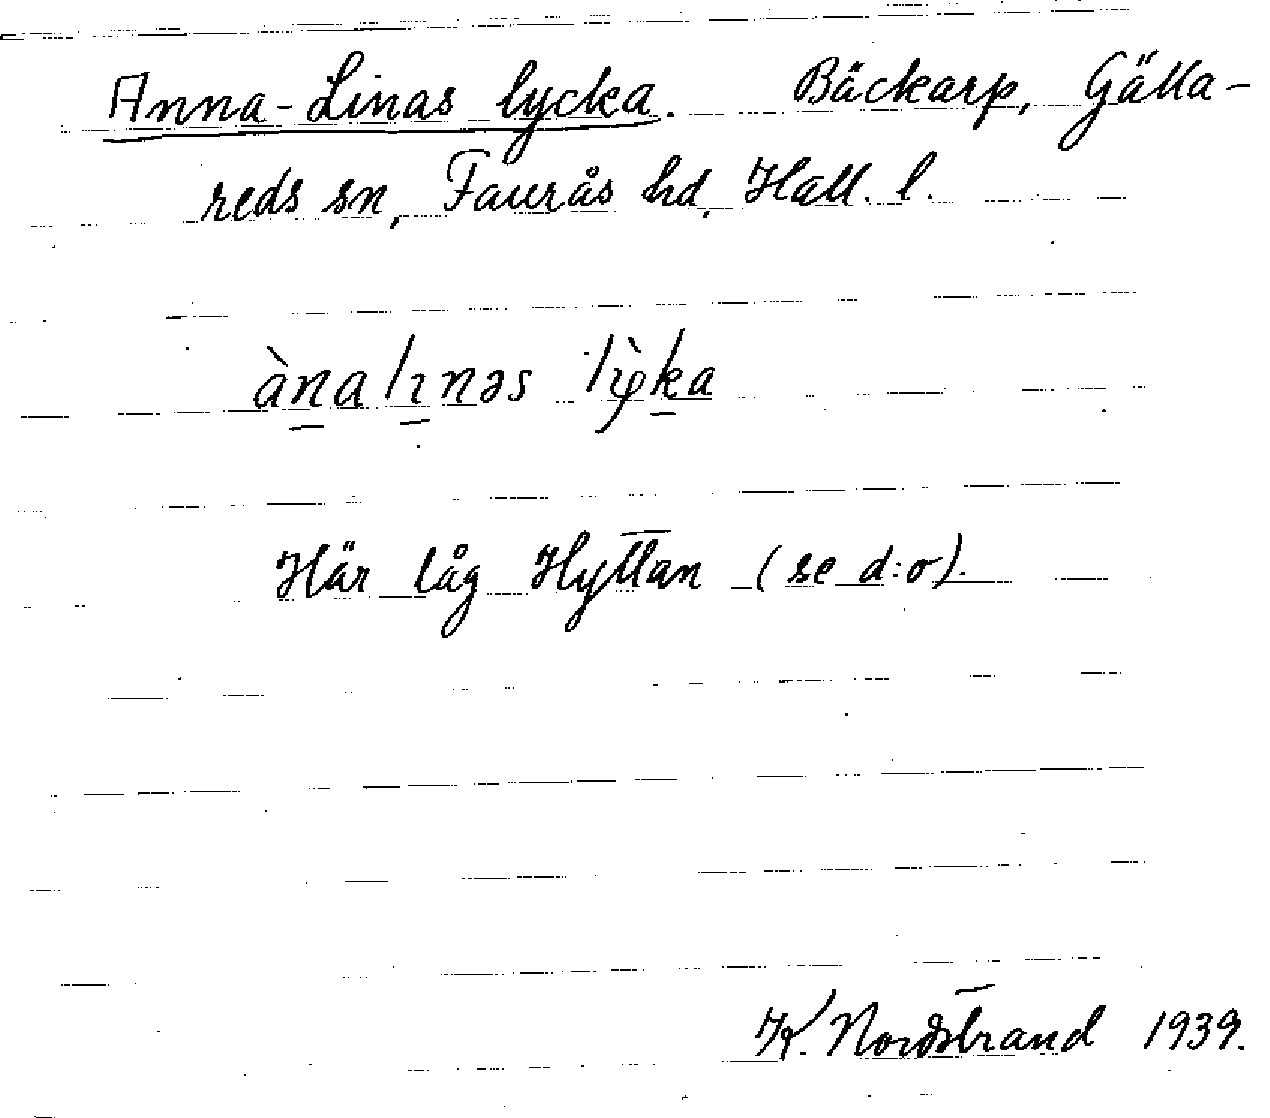 Anna-Linas lycka. Bäckarp, Gälla-
reds sn, Faurås hd, Hall. l.
àna lınəs
Här låg Hyttan (se d:o).
K. Nordstrand 1939.